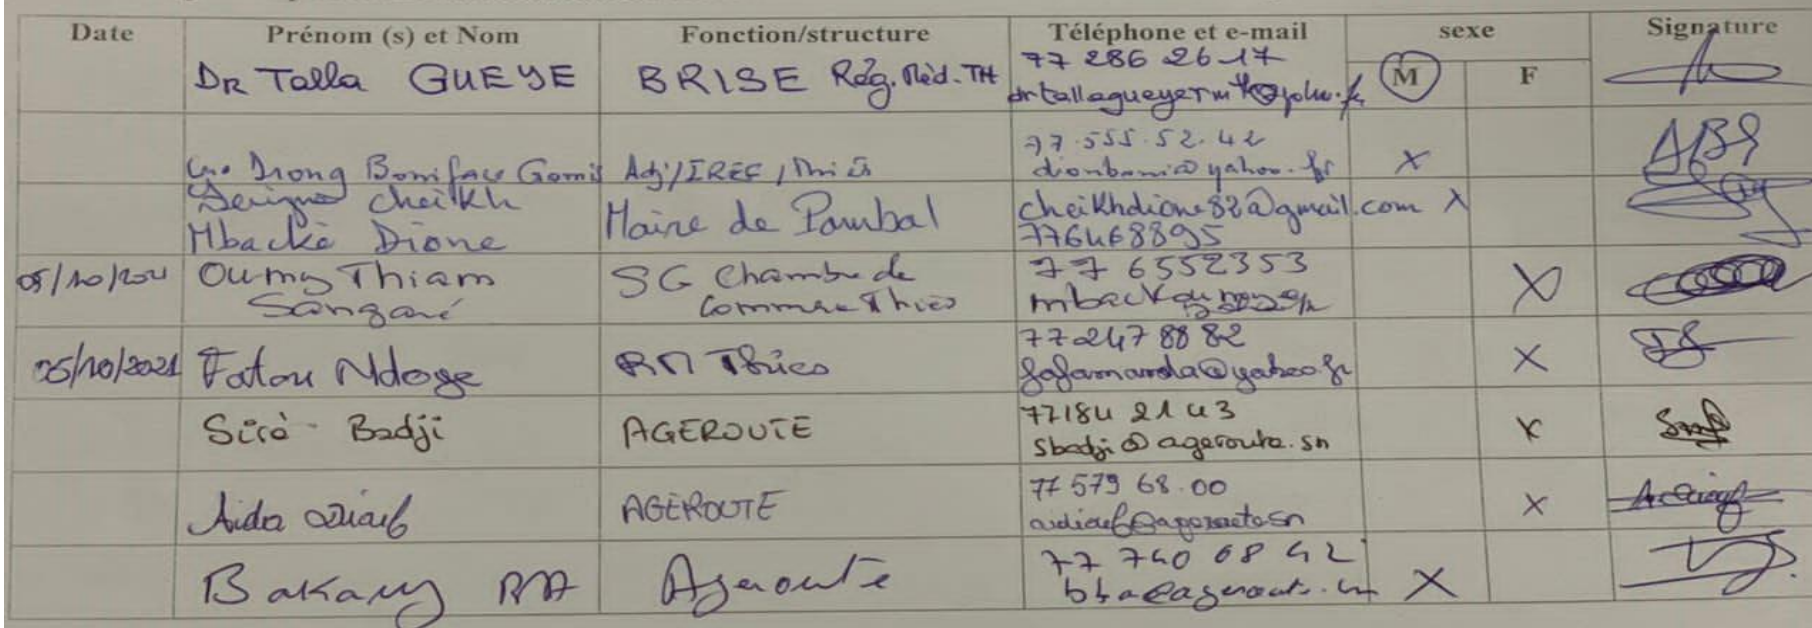 Date Prénom (s) et Nom Fonction/structure Téléphone et e-mail sexe Signature
M F
DR Talla GUEYE BRISE Rég. Méd. TH 77 286 26 17
Boniface Gomis Adj/IREF/Thiès 77.555.52.42
dionbani@yahoo.fr X
Serigne Cheikh
Mbacké Dione Maire de Pambal cheikhdione82@gmail.com X
776468895
05/10/2021 Oumy Thiam
Sangaré SG Chambre de
Commerce Thiès 77 6552353
X
05/10/2021 Fatou Ndoye Thies 77 247 88 82
fafamanda@yahoo.fr X
Siré Badji AGEROUTE 77184 21 43
sbadji@ageroute.sn X
Aida Diouf AGEROUTE 77 579 68.00
X
Bakary AGEROUTE 77 740 68 42
X